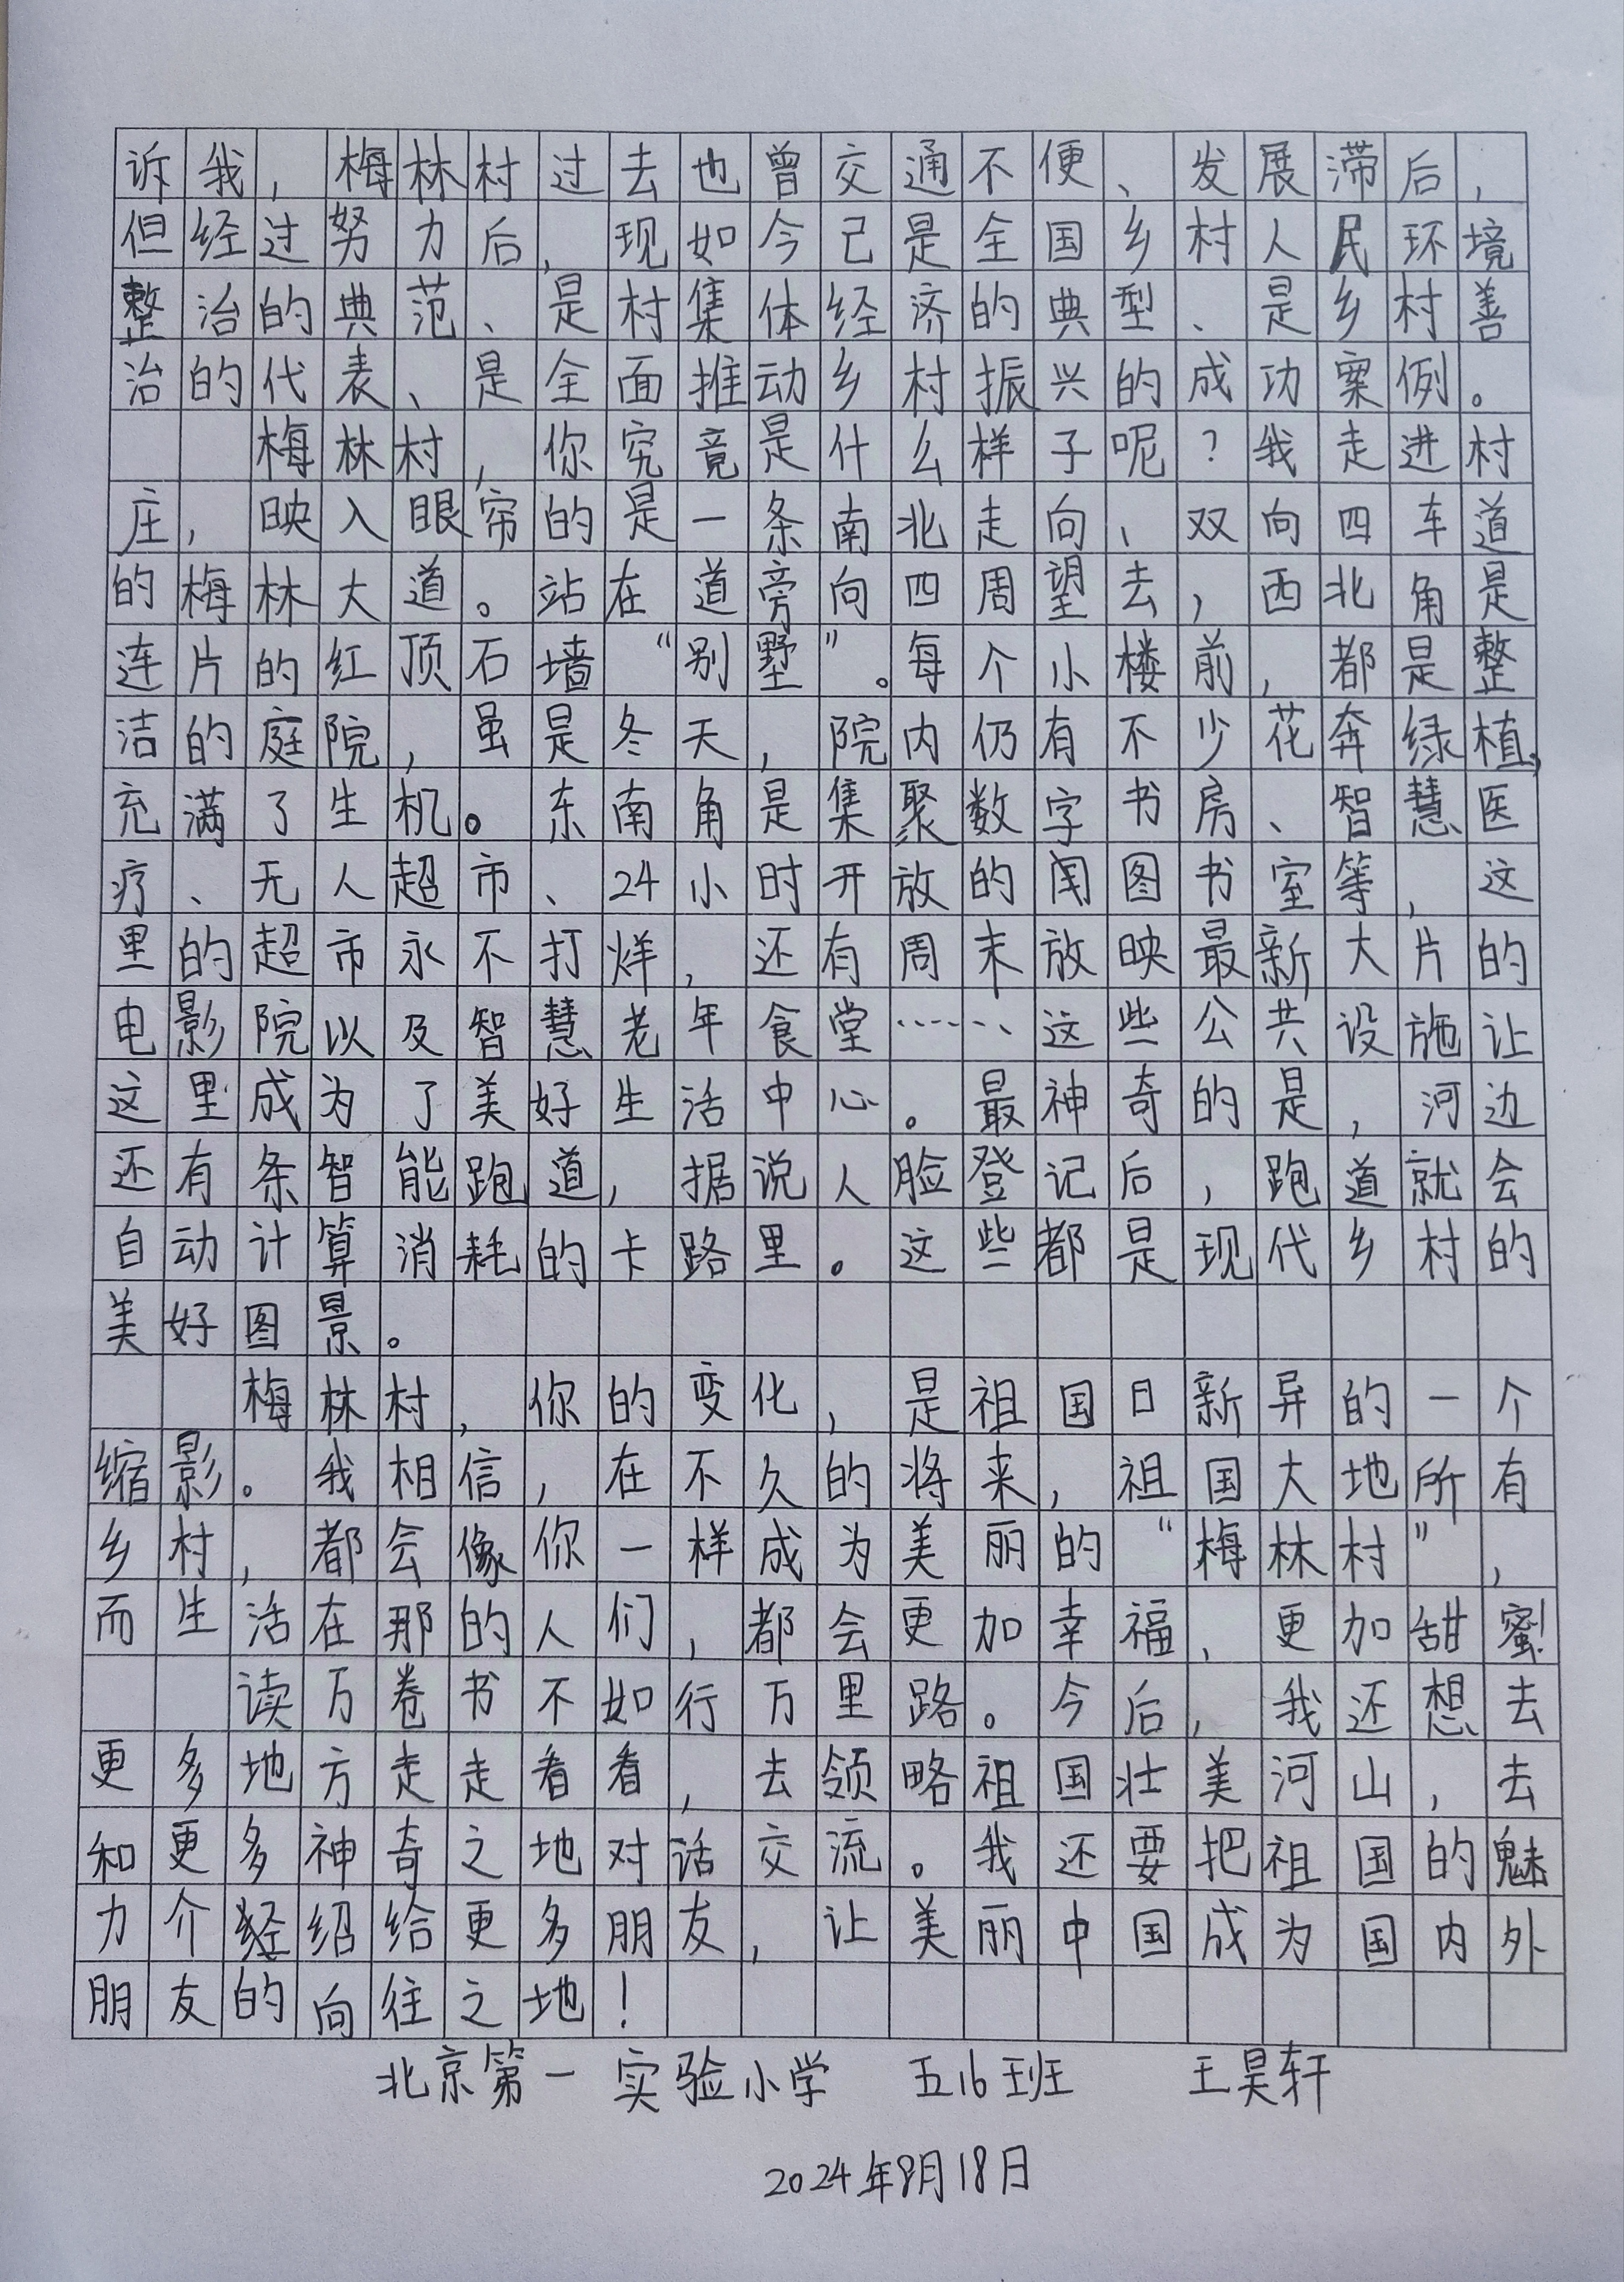 诉我，梅林村过去也曾交通不便、发展滞后，
但经过努力后，现如今已是全国乡村人民环境
整治的典范、是村集体经济的典型、是乡村善
治的代表、是全面推动乡村振兴的成功案例。
梅林村，你究竟是什么样子呢？我走进村
庄，映入眼帘的是一条南北走向、双向四车道
的梅林大道。站在道旁向四周望去，西北角是
连片的红顶石墙“别墅”。每个小楼前，都是整
洁的庭院，虽是冬天，院内仍有不少花奔绿植，
充满了生机。东南角是集聚数字书房、智慧医
疗、无人超市、24小时开放的图书室等，这
里的超市永不打烊，还有周末放映最新大片的
电影院以及智慧老年食堂……这些公共设施让
这里成为了美好生活中心。最神奇的是，河边
还有条智能跑道，据说人脸登记后，跑道就会
自动计算消耗的卡路里。这些都是现代乡村的
美好图景。
梅林村，你的变化，是祖国日新异的一个
缩影。我相信，在不久的将来，祖国大地所有
乡村，都会像你一样成为美丽的“梅林村”，
而生活在那的人们，都会更加幸福，更加甜蜜！
读万卷书不如行万里路。今后，我还想去
更多地方走走看看，去领略祖国壮美河山，去
和更多神奇之地对话交流。我还要把祖国的魅
力介绍给更多朋友，让美丽中国成为国内外
朋友的向往之地！
北京第一实验小学 五16班 王昊轩
2024年9月18日